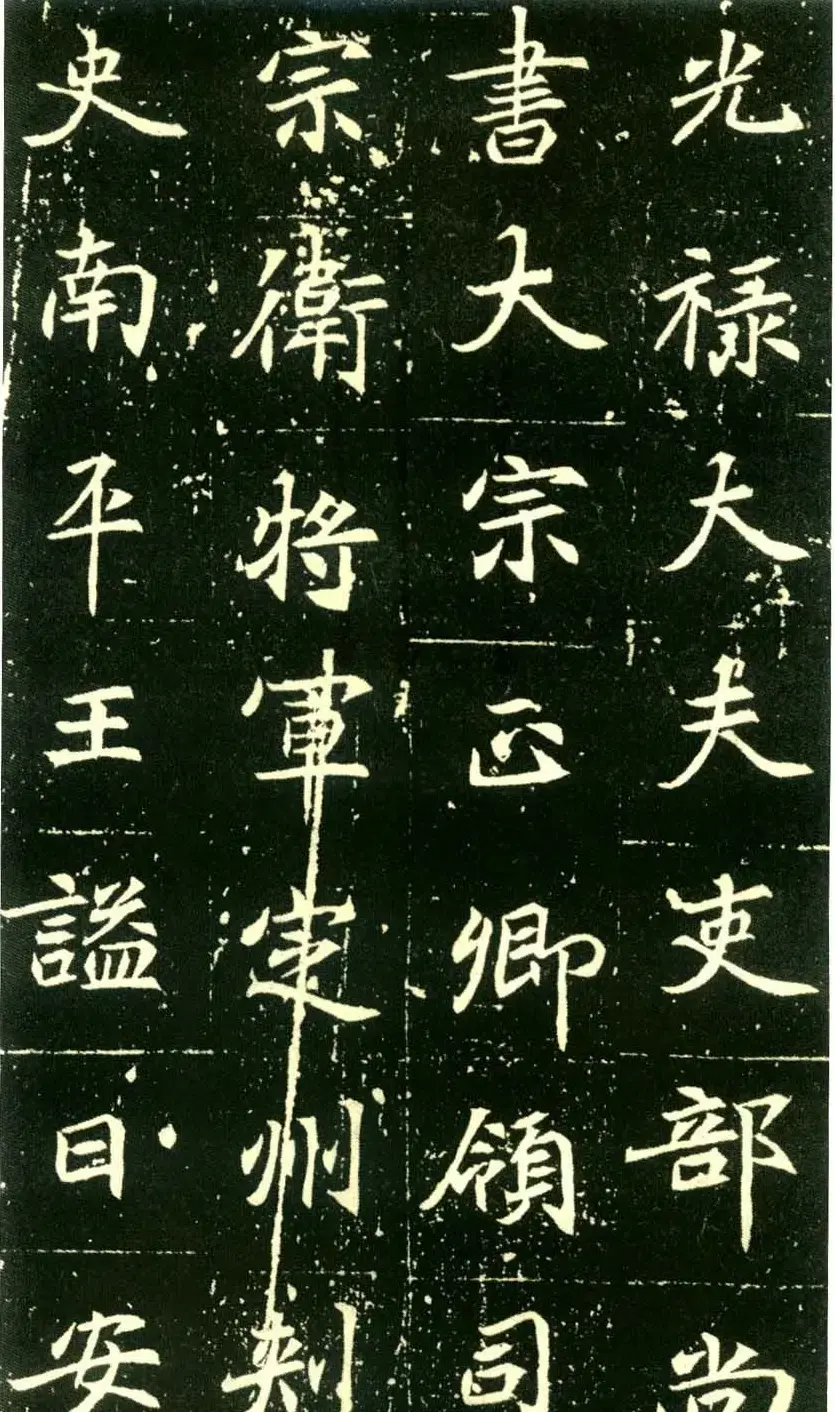 光禄大夫吏部尚
書大宗正卿領司
宗衛將軍定州刾
史南平王諡曰安